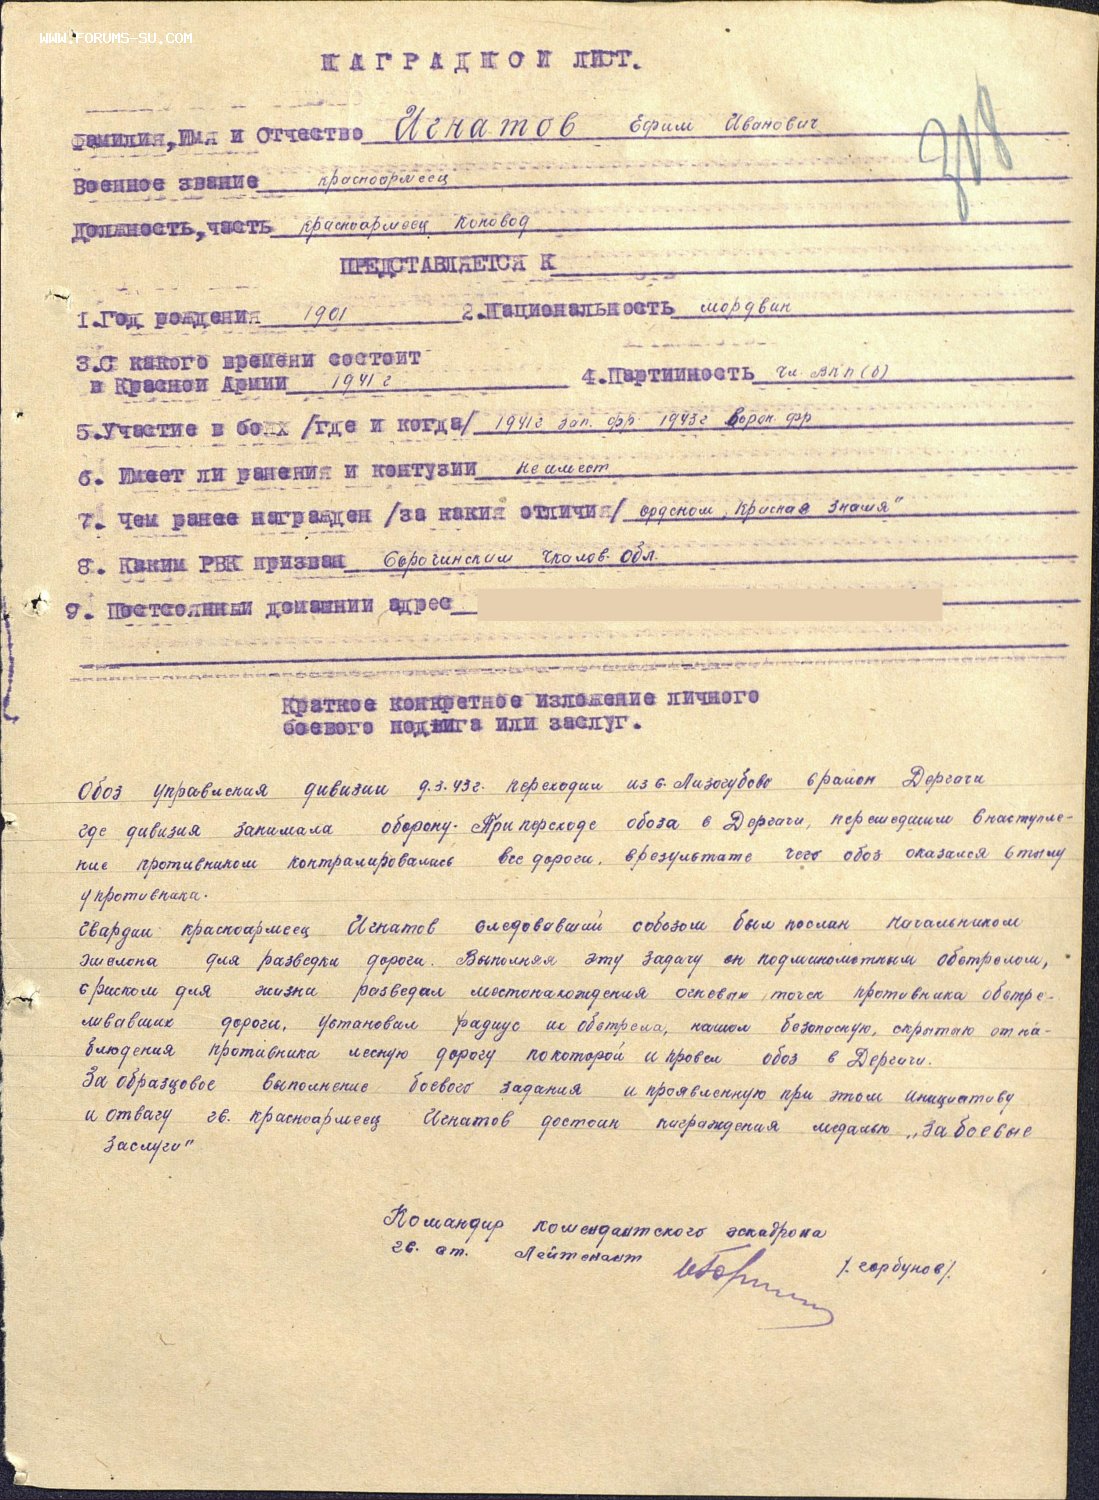 WWW.FORUMS-SU.COM
НАГРАДНОЙ ЛИСТ.
Фамилия, Имя и Отчество Игнатов Ефим Иванович
Военное звание красноармеец
Должность, часть красноармеец коновод
ПРЕДСТАВЛЯЕТСЯ К
1. Год рождения 1901 2. Национальность мордвин
3. С какого времени состоит
в Красной Армии 1941 г 4. Партийность чл. ВКП(б)
5. Участие в боях /где и когда/ 1941г зап. фр 1943г Ворон. фр
6. Имеет ли ранения и контузии не имеет
7. Чем ранее награжден /за какия отличия/ орденом „Красная Знамя"
8. Каким РВК призван Сорочинским Чкалов. Обл.
9. Постоянный домашний адрес
Краткое конкретное изложение личного
боевого подвига или заслуг.
Обоз управления дивизии 9.3.43г. переходил из с. Лизогубово в район Дергачи
где дивизия занимала оборону. При переходе обоза в Дергачи, перешедшим в наступле-
ние противником контралировались все дороги, в результате чего обоз оказался в тылу
у противника.
Гвардии красноармеец Игнатов следовавший с обозом был послан начальником
эшелона для разведки дороги. Выполняя эту задачу он под минометным обстрелом,
с риском для жизни разведал местонахождения огневых точек противника обстре-
ливавших дороги, установил радиус их обстрела, нашол безопасную, скрытую от на-
блюдения противника лесную дорогу по которой и провел обоз в Дергачи.
За образцовое выполнение боевого задания и проявленную при этом инициативу
и отвагу гв. красноармеец Игнатов достоин награждения медалью „За боевые
заслуги"
Командир комендантского эскадрона
гв. ст. Лейтенант /. горбунов/.